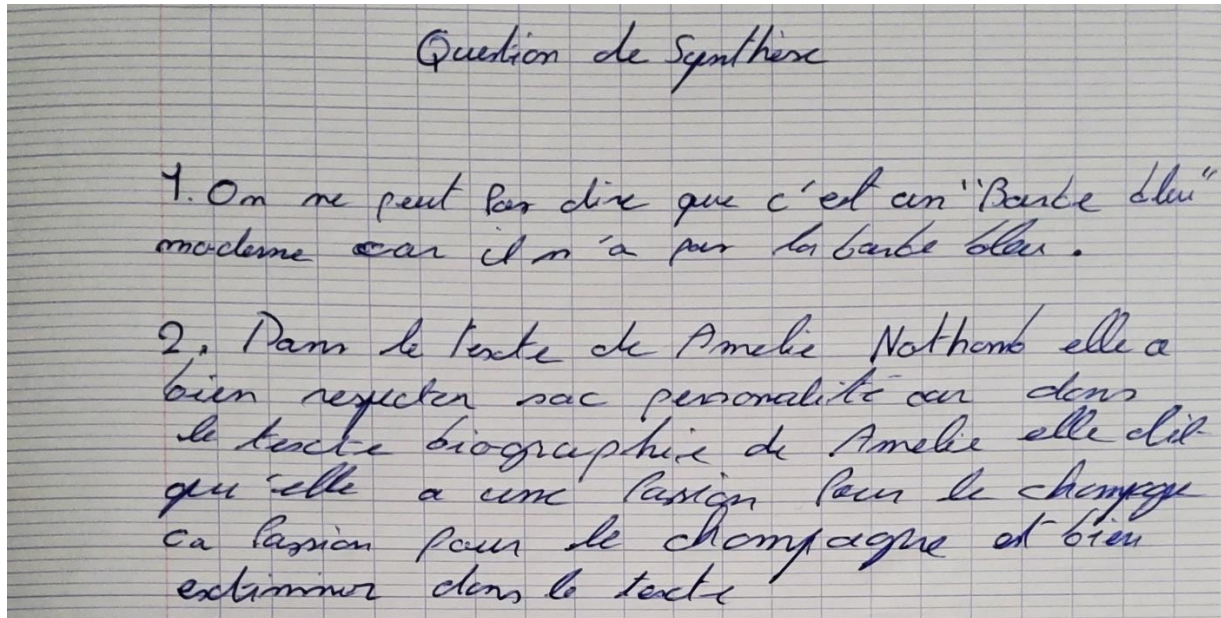 Question de Synthèse
1. On ne peut pas dire que c'est un "Barbe bleu"
moderne car il n'a pas la barbe bleu.
2. Dans le texte de Amelie Nothomb elle a
bien respecter sac personalité car dans
le texte biographie de Amelie elle dit
qu'elle a une passion pour le champage
ca passion pour le champagne et bien
dans le texte